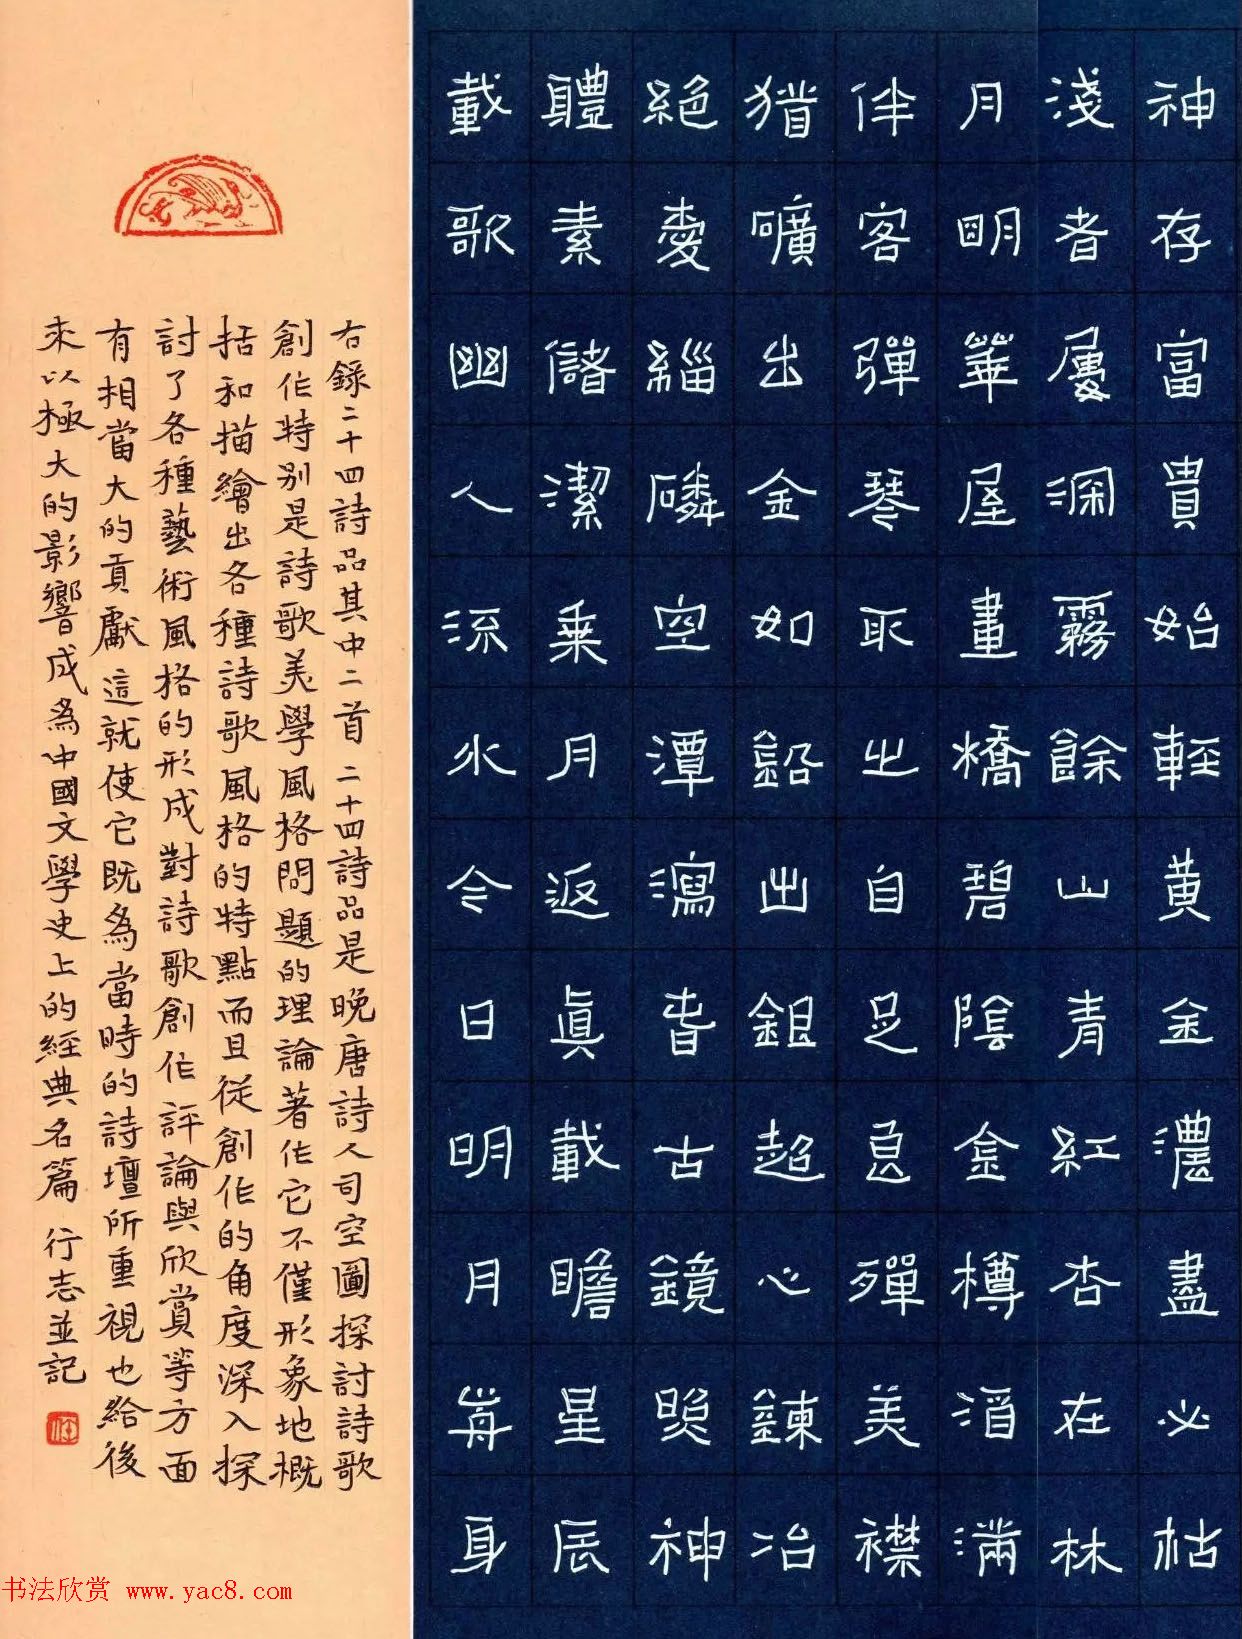 神存富貴始輕黄金濃盡必枯
淺者屢深霧餘山青紅杏在林
月明華屋畫橋碧陰金樽酒滿
伴客彈琴取之自足良殫美襟
猶礦出金如鉛出銀超心鍊冶
絕愛緇磷空潭瀉春古鏡照神
體素儲潔乘月返真載瞻星辰
載歌幽人流水今日明月前身
右錄二十四詩品其中二首二十四詩品是晚唐詩人司空圖探討詩歌
創作特別是詩歌美學風格問題的理論著作它不僅形象地概
括和描繪出各種詩歌風格的特點而且從創作的角度深入探
討了各種藝術風格的形成對詩歌創作評論與欣賞等方面
有相當大的貢獻這就使它既為當時的詩壇所重視也給後
來以極大的影響成為中國文學史上的經典名篇 行志並記
书法欣赏 www.yac8.com